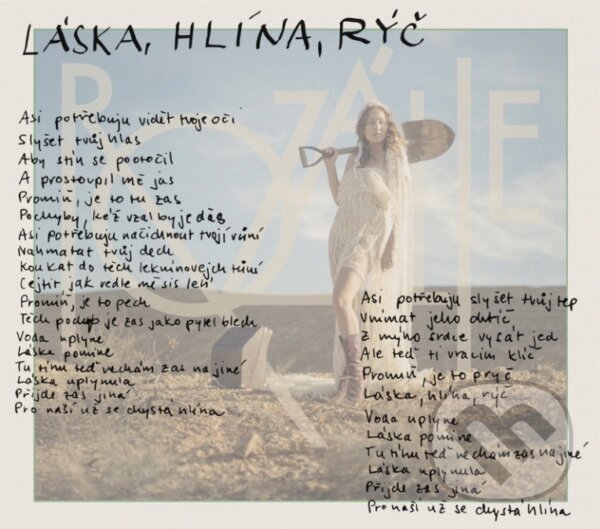 LÁSKA, HLÍNA, RÝČ
ROZÁLIE
Asi potřebuju vidět tvoje oči
Slyšet tvůj hlas
Aby stín se pootočil
A prostoupil mě jas
Promiň, je to tu zas
Pochyby, kéž vzal by je ďas
Asi potřebuju načichnout tvojí vůní
Nahmatat tvůj dech
Koukat do těch leknínovejch tůní
Cejtit jak vedle mě sis leh'
Promiň, je to pech
Těch pochyb je zas jako pytel blech
Voda uplyne
Láska pomine
Tu tíhu teď nechám zas na jiné
Láska uplynula
Přijde zas jiná
Pro naší už se chystá hlína
Asi potřebuju slyšet tvůj tep
Vnímat jeho
Z mýho srdce vysát jed
Ale teď ti vracím klíč
Promiň, je to pryč
Láska, hlína, rýč
Voda uplyne
Láska pomine
Tu tíhu teď nechám zas na jiné
Láska uplynula
Přijde zas jiná
Pro naší už se chystá hlína
m